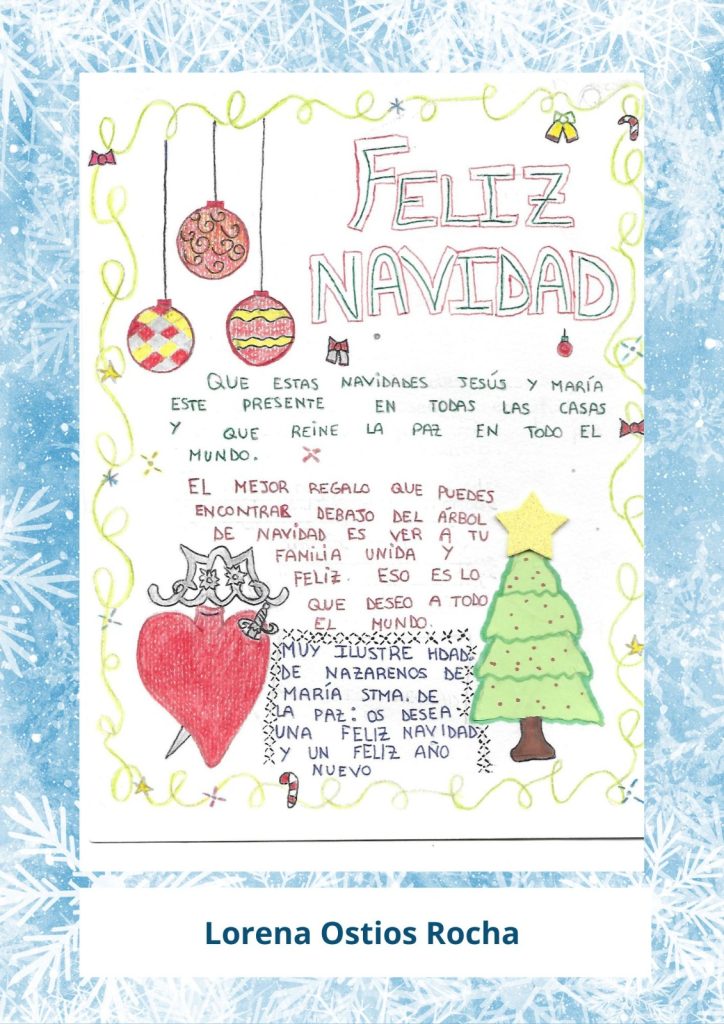 FELIZ
NAVIDAD
QUE ESTAS NAVIDADES JESÚS Y MARÍA
ESTE PRESENTE EN TODAS LAS CASAS
Y QUE REINE LA PAZ EN TODO EL
MUNDO.
EL MEJOR REGALO QUE PUEDES
ENCONTRAR DEBAJO DEL ÁRBOL
DE NAVIDAD ES VER A TU
FAMILIA UNIDA Y
FELIZ. ESO ES LO
QUE DESEO A TODO
EL MUNDO.
MUY ILUSTRE HDAD.
DE NAZARENOS DE
MARÍA STMA. DE
LA PAZ: OS DESEA
UNA FELIZ NAVIDAD
Y UN FELIZ AÑO
NUEVO
Lorena Ostios Rocha